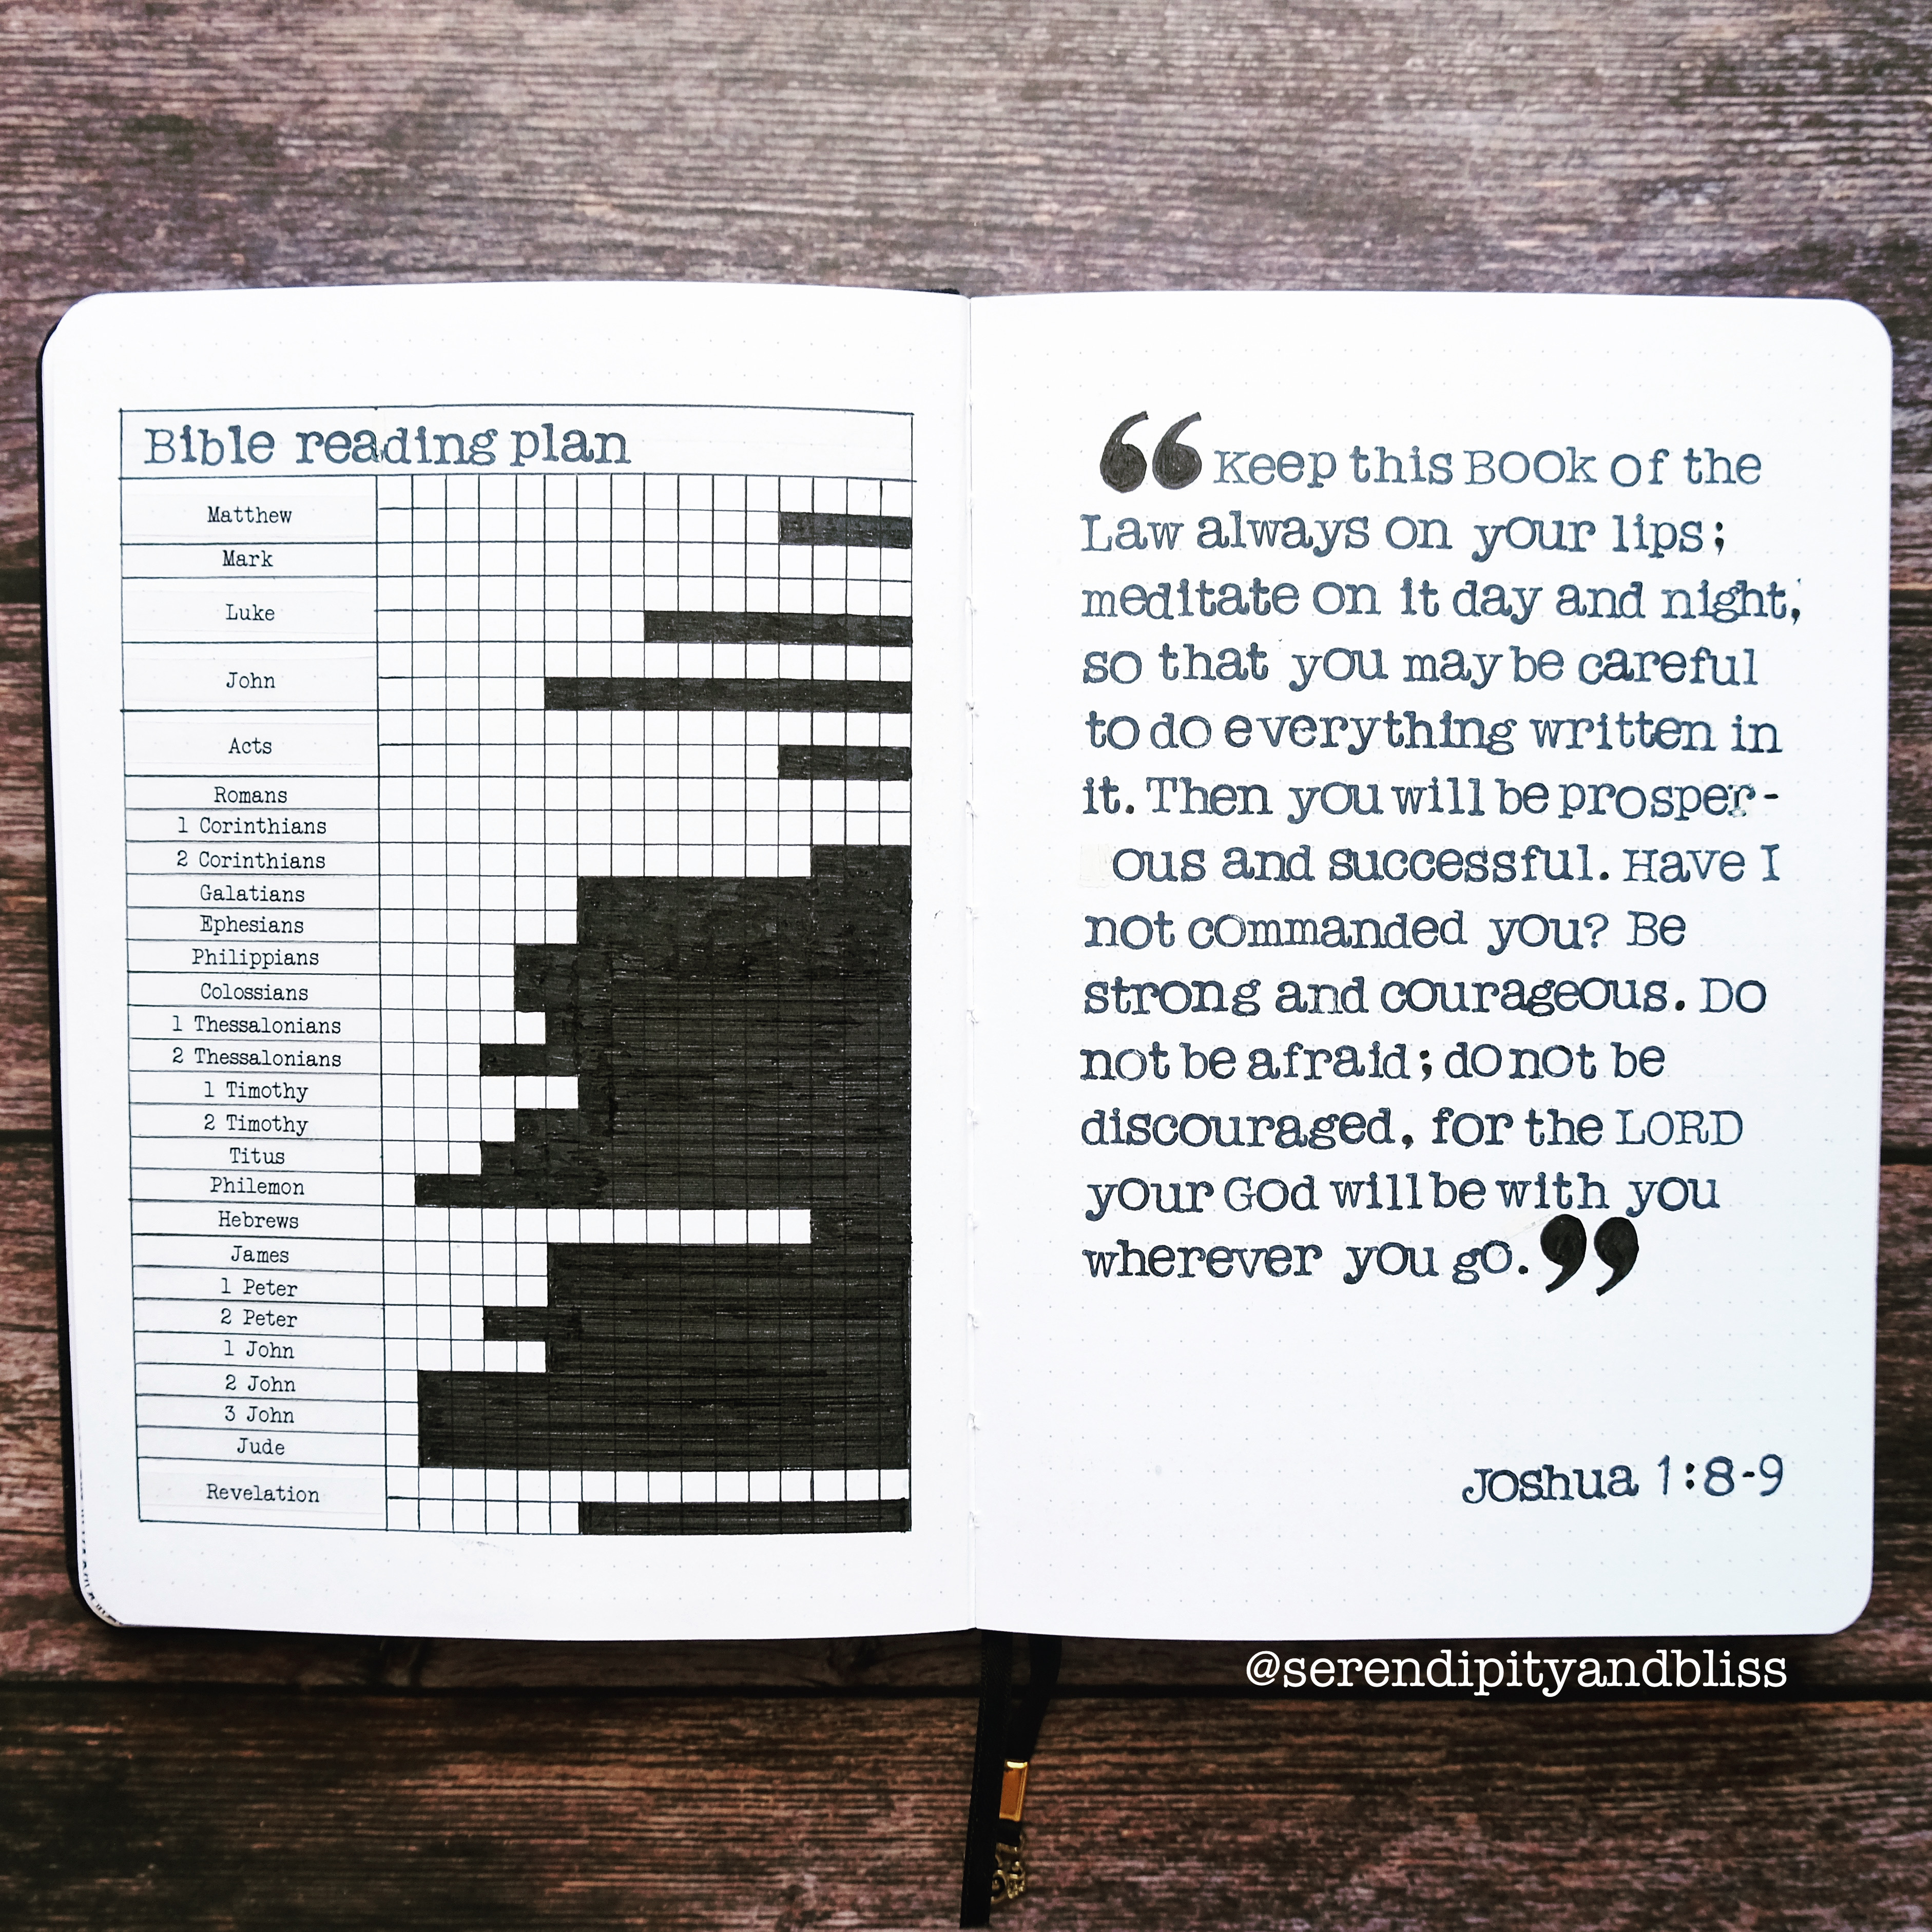 Bible reading plan
Matthew
Mark
Luke
John
Acts
Romans
1 Corinthians
2 Corinthians
Galatians
Ephesians
Philippians
Colossians
1 Thessalonians
2 Thessalonians
1 Timothy
2 Timothy
Titus
Philemon
Hebrews
James
1 Peter
2 Peter
1 John
2 John
3 John
Jude
Revelation
“Keep this BOOK of the
Law always on your lips;
meditate on it day and night,
so that you may be careful
to do everything written in
it. Then you will be prosper-
ous and successful. Have I
not commanded you? Be
strong and courageous. Do
not be afraid; do not be
discouraged, for the LORD
your God will be with you
wherever you go.”
Joshua 1:8-9
@serendipityandbliss